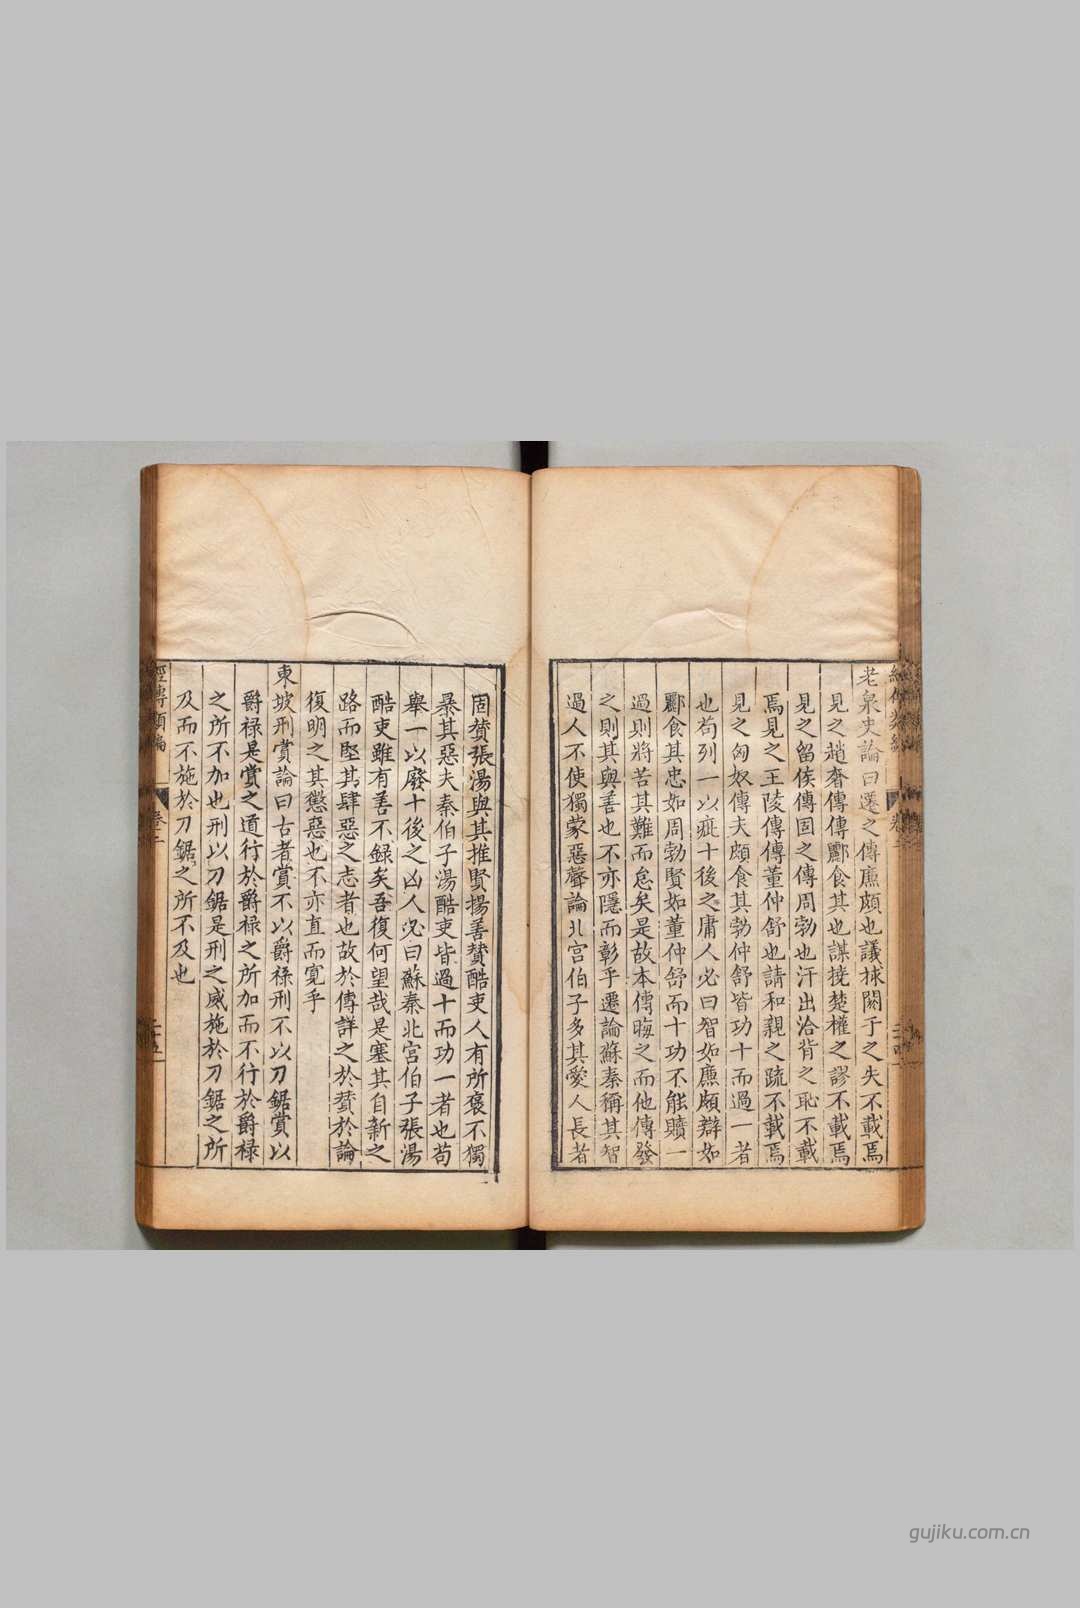 老泉史論曰遷之傳廉頗也議捄閼于之失不載焉
見之趙奢傳傳酈食其也謀撓楚權之謬不載焉
見之留侯傳固之傳周勃也汗出洽背之恥不載
焉見之王陵傳傳董仲舒也請和親之疏不載焉
見之匈奴傳夫頗食其勃仲舒皆功十而過一者
也苟列一以疵十後之庸人必曰智如廉頗辯如
酈食其忠如周勃賢如董仲舒而十功不能贖一
過則將苦其難而怠矣是故本傳晦之而他傳發
之則其與善也不亦隱而彰乎遷論蘇秦稱其智
過人不使獨蒙惡聲論北宫伯子多其愛人長者
固賛張湯與其推賢揚善賛酷吏人有所褒不獨
暴其惡夫秦伯子湯酷吏皆過十而功一者也苟
舉一以廢十後之凶人必曰蘇秦北宫伯子張湯
酷吏雖有善不録矣吾復何望哉是塞其自新之
路而堅其肆惡之志者也故於傳詳之於賛於論
復明之其懲惡也不亦直而寛乎
東坡刑賞論曰古者賞不以爵禄刑不以刀鋸賞以
爵禄是賞之道行於爵禄之所加而不行於爵禄
之所不加也刑以刀鋸是刑之威施於刀鋸之所
及而不施於刀鋸之所不及也
經傳類編
卷二
二十五
gujiku.com.cn